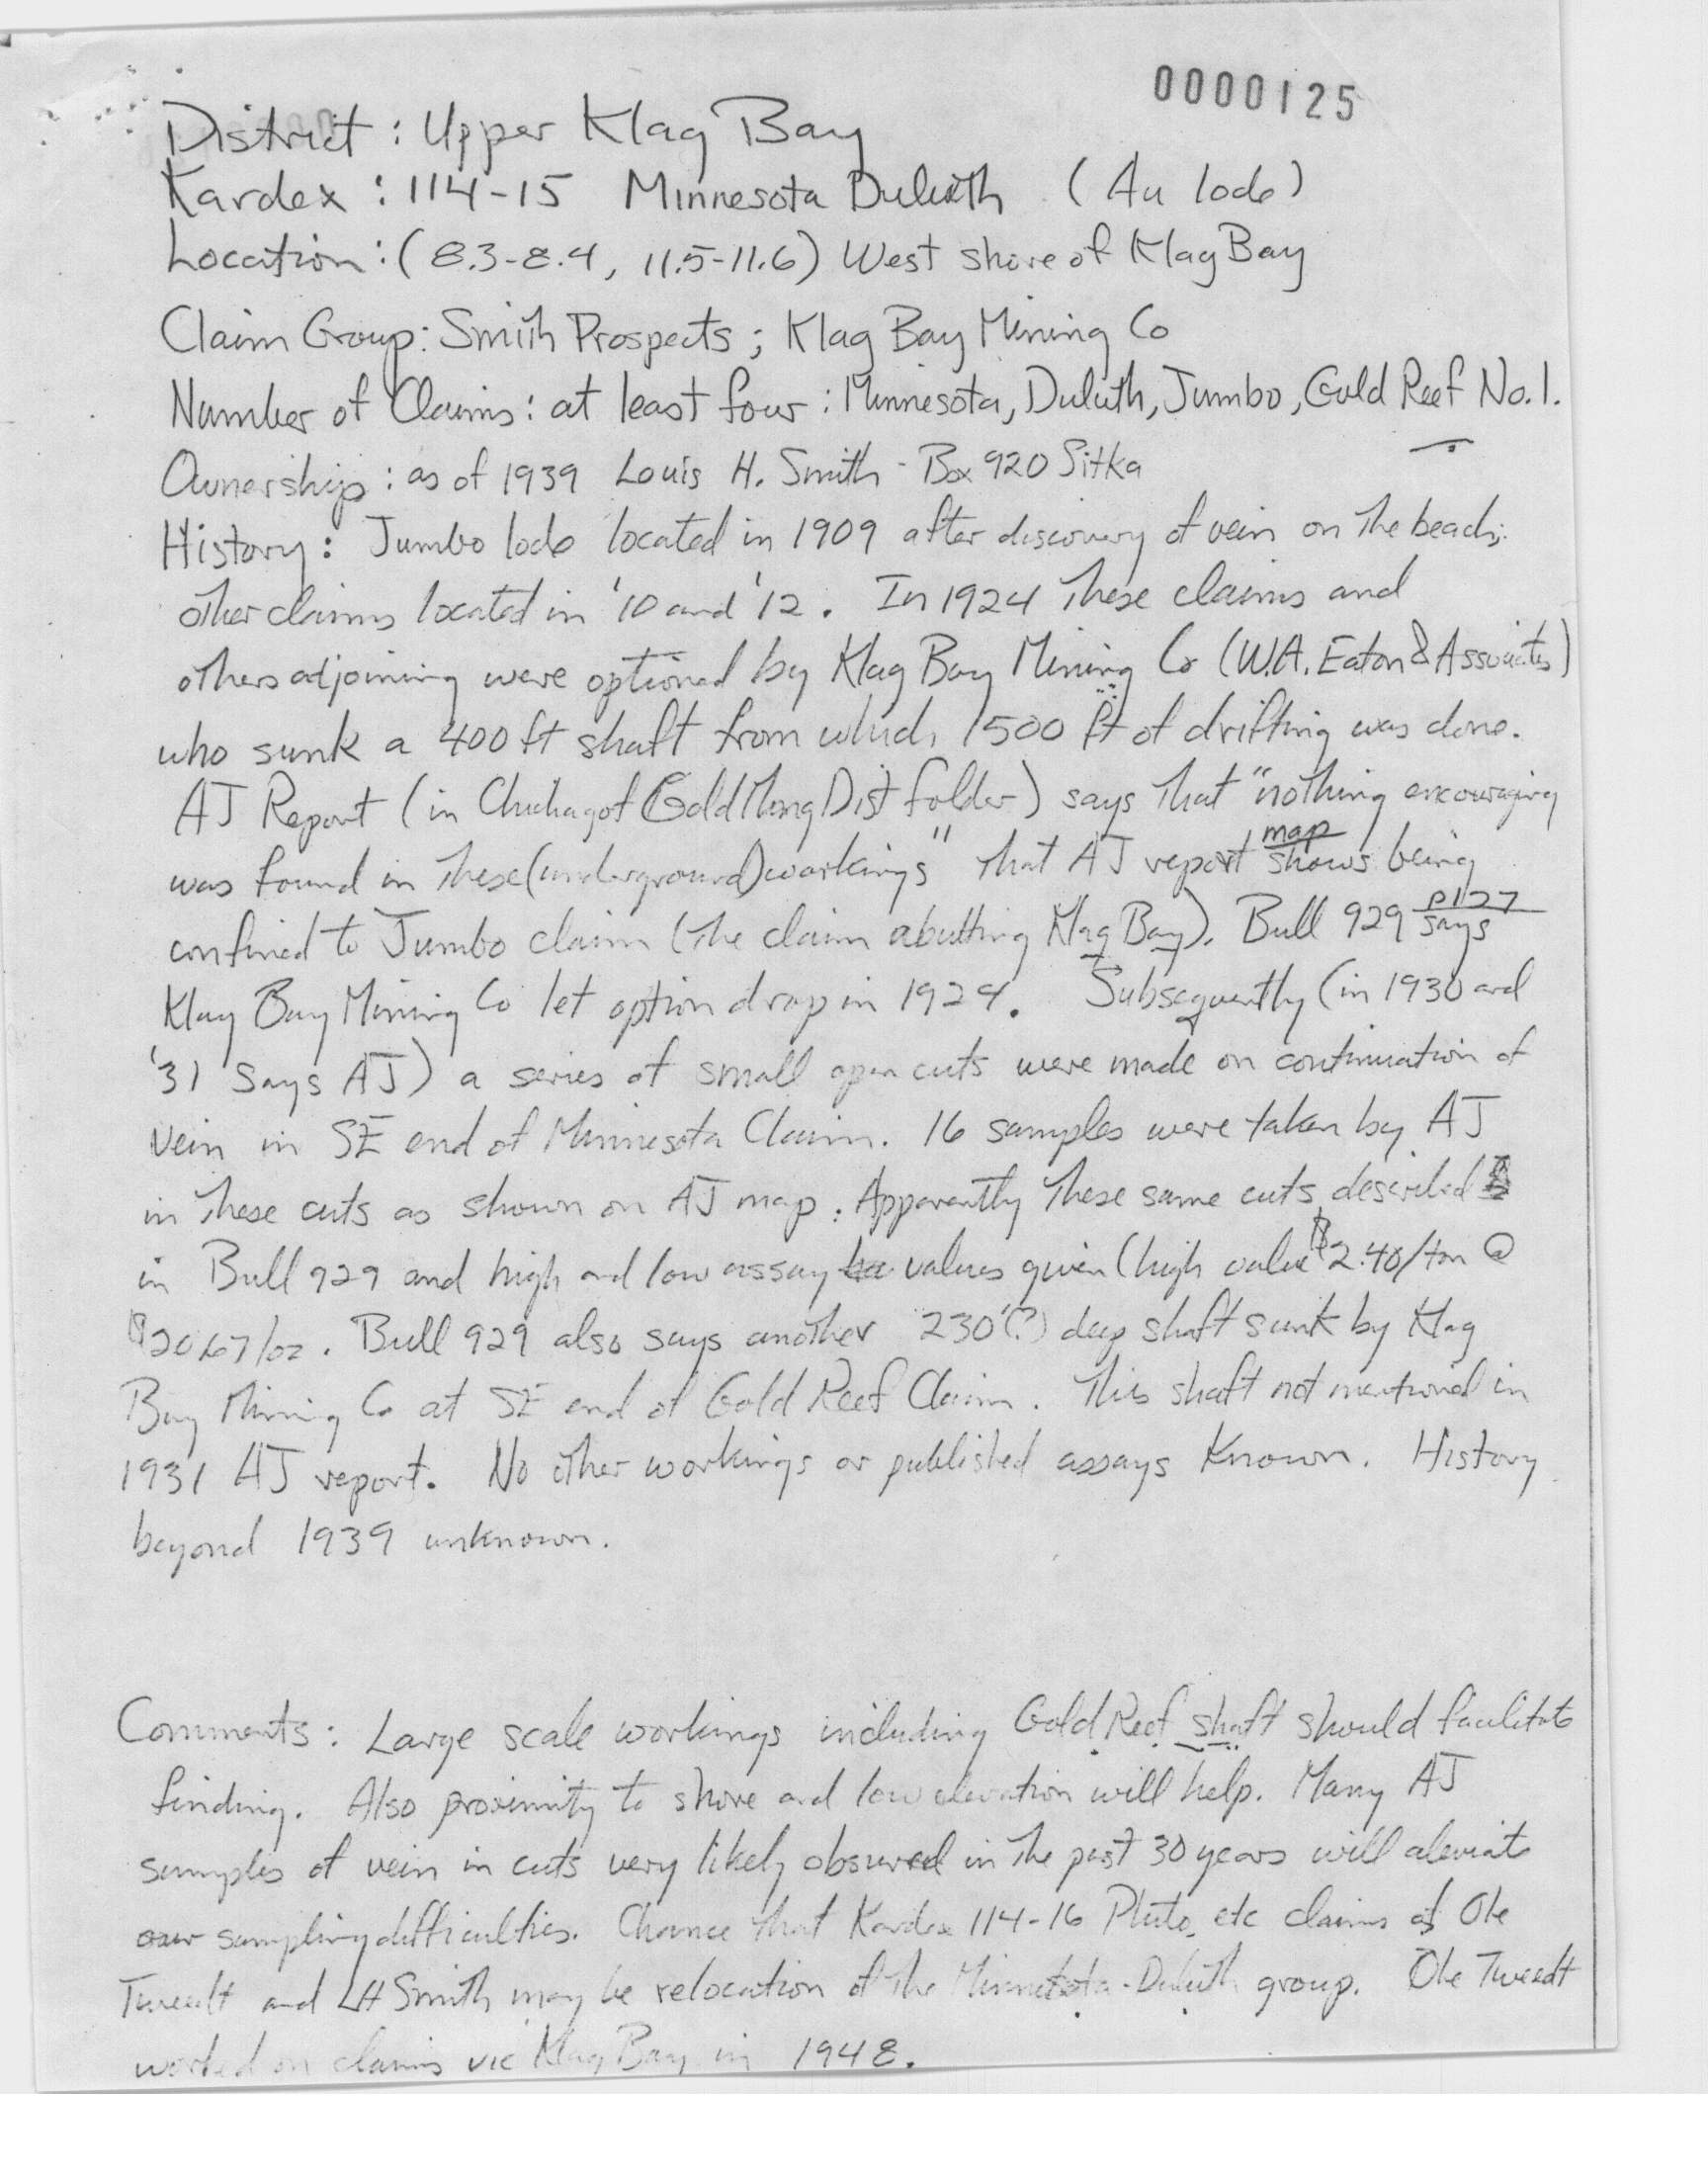 0000125
District : Upper Klag Bay
Kardex : 114-15 Minnesota Duluth (Au lode)
Location : (8.3-8.4, 11.5-11.6) West shore of Klag Bay
Claim Group: Smith Prospects ; Klag Bay Mining Co
Number of Claims : at least four : Minnesota, Duluth, Jumbo, Gold Reef No. 1.
Ownership : as of 1939 Louis H. Smith - Box 920 Sitka
History : Jumbo lode located in 1909 after discovery of vein on the beach;
other claims located in '10 and '12. In 1924 these claims and
others adjoining were optioned by Klag Bay Mining Co (W.A. Eaton & Associates)
who sunk a 400 ft shaft from which 1500 ft of drifting was done.
AJ Report (in Chichagof Gold Mng Dist folder) says that "nothing encouraging
was found in these (underground) workings" that AJ report map shows being
confined to Jumbo claim (the claim abutting Klag Bay). Bull 929 p127 says
Klag Bay Mining Co let option drop in 1924. Subsequently (in 1930 and
'31 says AJ) a series of small open cuts were made on continuation of
vein in SE end of Minnesota Claim. 16 samples were taken by AJ
in these cuts as shown on AJ map. Apparently these same cuts described
in Bull 929 and high and low assay values given (high value $2.40/ton @
$20.67/oz. Bull 929 also says another 230'(?) deep shaft sunk by Klag
Bay Mining Co at SE end of Gold Reef Claim. This shaft not mentioned in
1931 AJ report. No other workings or published assays known. History
beyond 1939 unknown.
Comments : Large scale workings including Gold Reef shaft should facilitate
finding. Also proximity to shore and low elevation will help. Many AJ
samples of vein in cuts very likely obscured in the past 30 years will aleviate
our sampling difficulties. Chance that Kardex 114-16 Pluto, etc claims of Ole
Tweedt and LH Smith may be relocation of the Minnesota-Duluth group. Ole Tweedt
worked on claims vic Klag Bay in 1948.